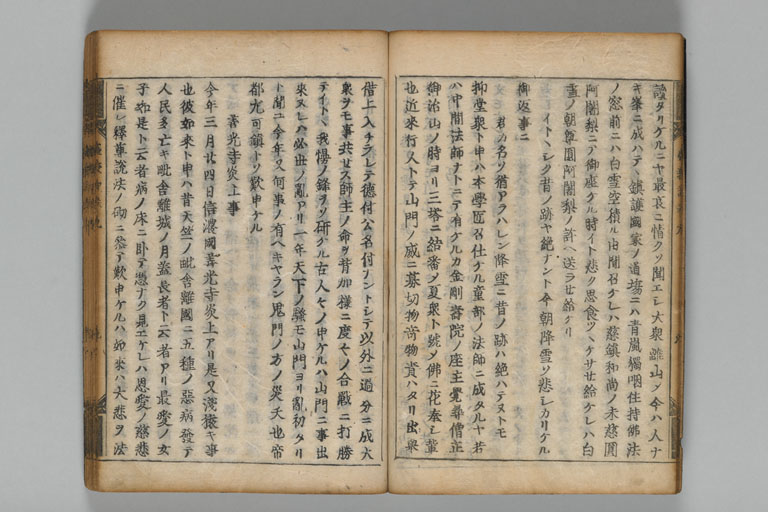 諠タリケルニヤ最哀ニ情クソ聞エシ大衆離山シ今ハ人ナ
キ峯ニ成ハテヽ鎮護國家ノ道場ニハ青嵐獨咽住持佛法
ノ窓前ニハ白雪空積ル由聞召ケレハ慈鎮和尚ノ未慈圓
阿闍梨ニテ御座ケル時イト悲ク思食ツヽケサセ給ケレハ白
雪ノ朝尊圓阿闍梨ノ許ヘ送ラセ給ケリ
イトヽシク昔ノ跡ヤ絶ナント今朝降雪ソ悲シカリケル
御返事ニ
君カ名ソ猶アラハレン降雪ニ昔ノ跡ハ絶ハテヌトモ
抑堂衆ト申ハ本學匠召仕ケル童部ノ法師ニ成タルヤ若
ハ中間法師ナトニテ有ケルカ金剛壽院ノ座主覺尋僧正
御治山ノ時ヨリ三塔ニ結番シ夏衆ト號シ佛ニ花奉シ輩
也近来行人トテ山門ノ威ニ募切物寄物責ハタリ出擧
借上入チラシテ德付公名付ナントシテ以外ニ過分ニ成大
衆ヲモ事共セス師主ノ命ヲ背加様ニ度々ノ合戰ニ打勝
テイトヽ我慢ノ鋒ヲソ研ケル古人々ノ申ケルハ山門ニ事出
来ヌレハ必世ノ亂アリ一年天下ノ騒モ山門ヨリ亂初タリ
ト聞ユ今年又何事ノ有ヘキヤラン鬼門ノ方ノ災夭也帝
都尤可鎮トソ歎申ケル
善光寺炎上事
今年三月廿四日信濃國善光寺炎上アリ是又淺猿キ事
也彼如来ト申ハ昔天竺ノ毗舍離國ニ五種ノ惡病發テ
人民多亡キ毗舍離城ノ月蓋長者ト云者アリ最愛ノ女
子如是ト云者病ノ床ニ臥テ憑ナク見エケレハ恩愛ノ慈悲
ニ催レ釋尊說法ノ砌ニ參テ歎申ケルハ如来ハ大悲ヲ法